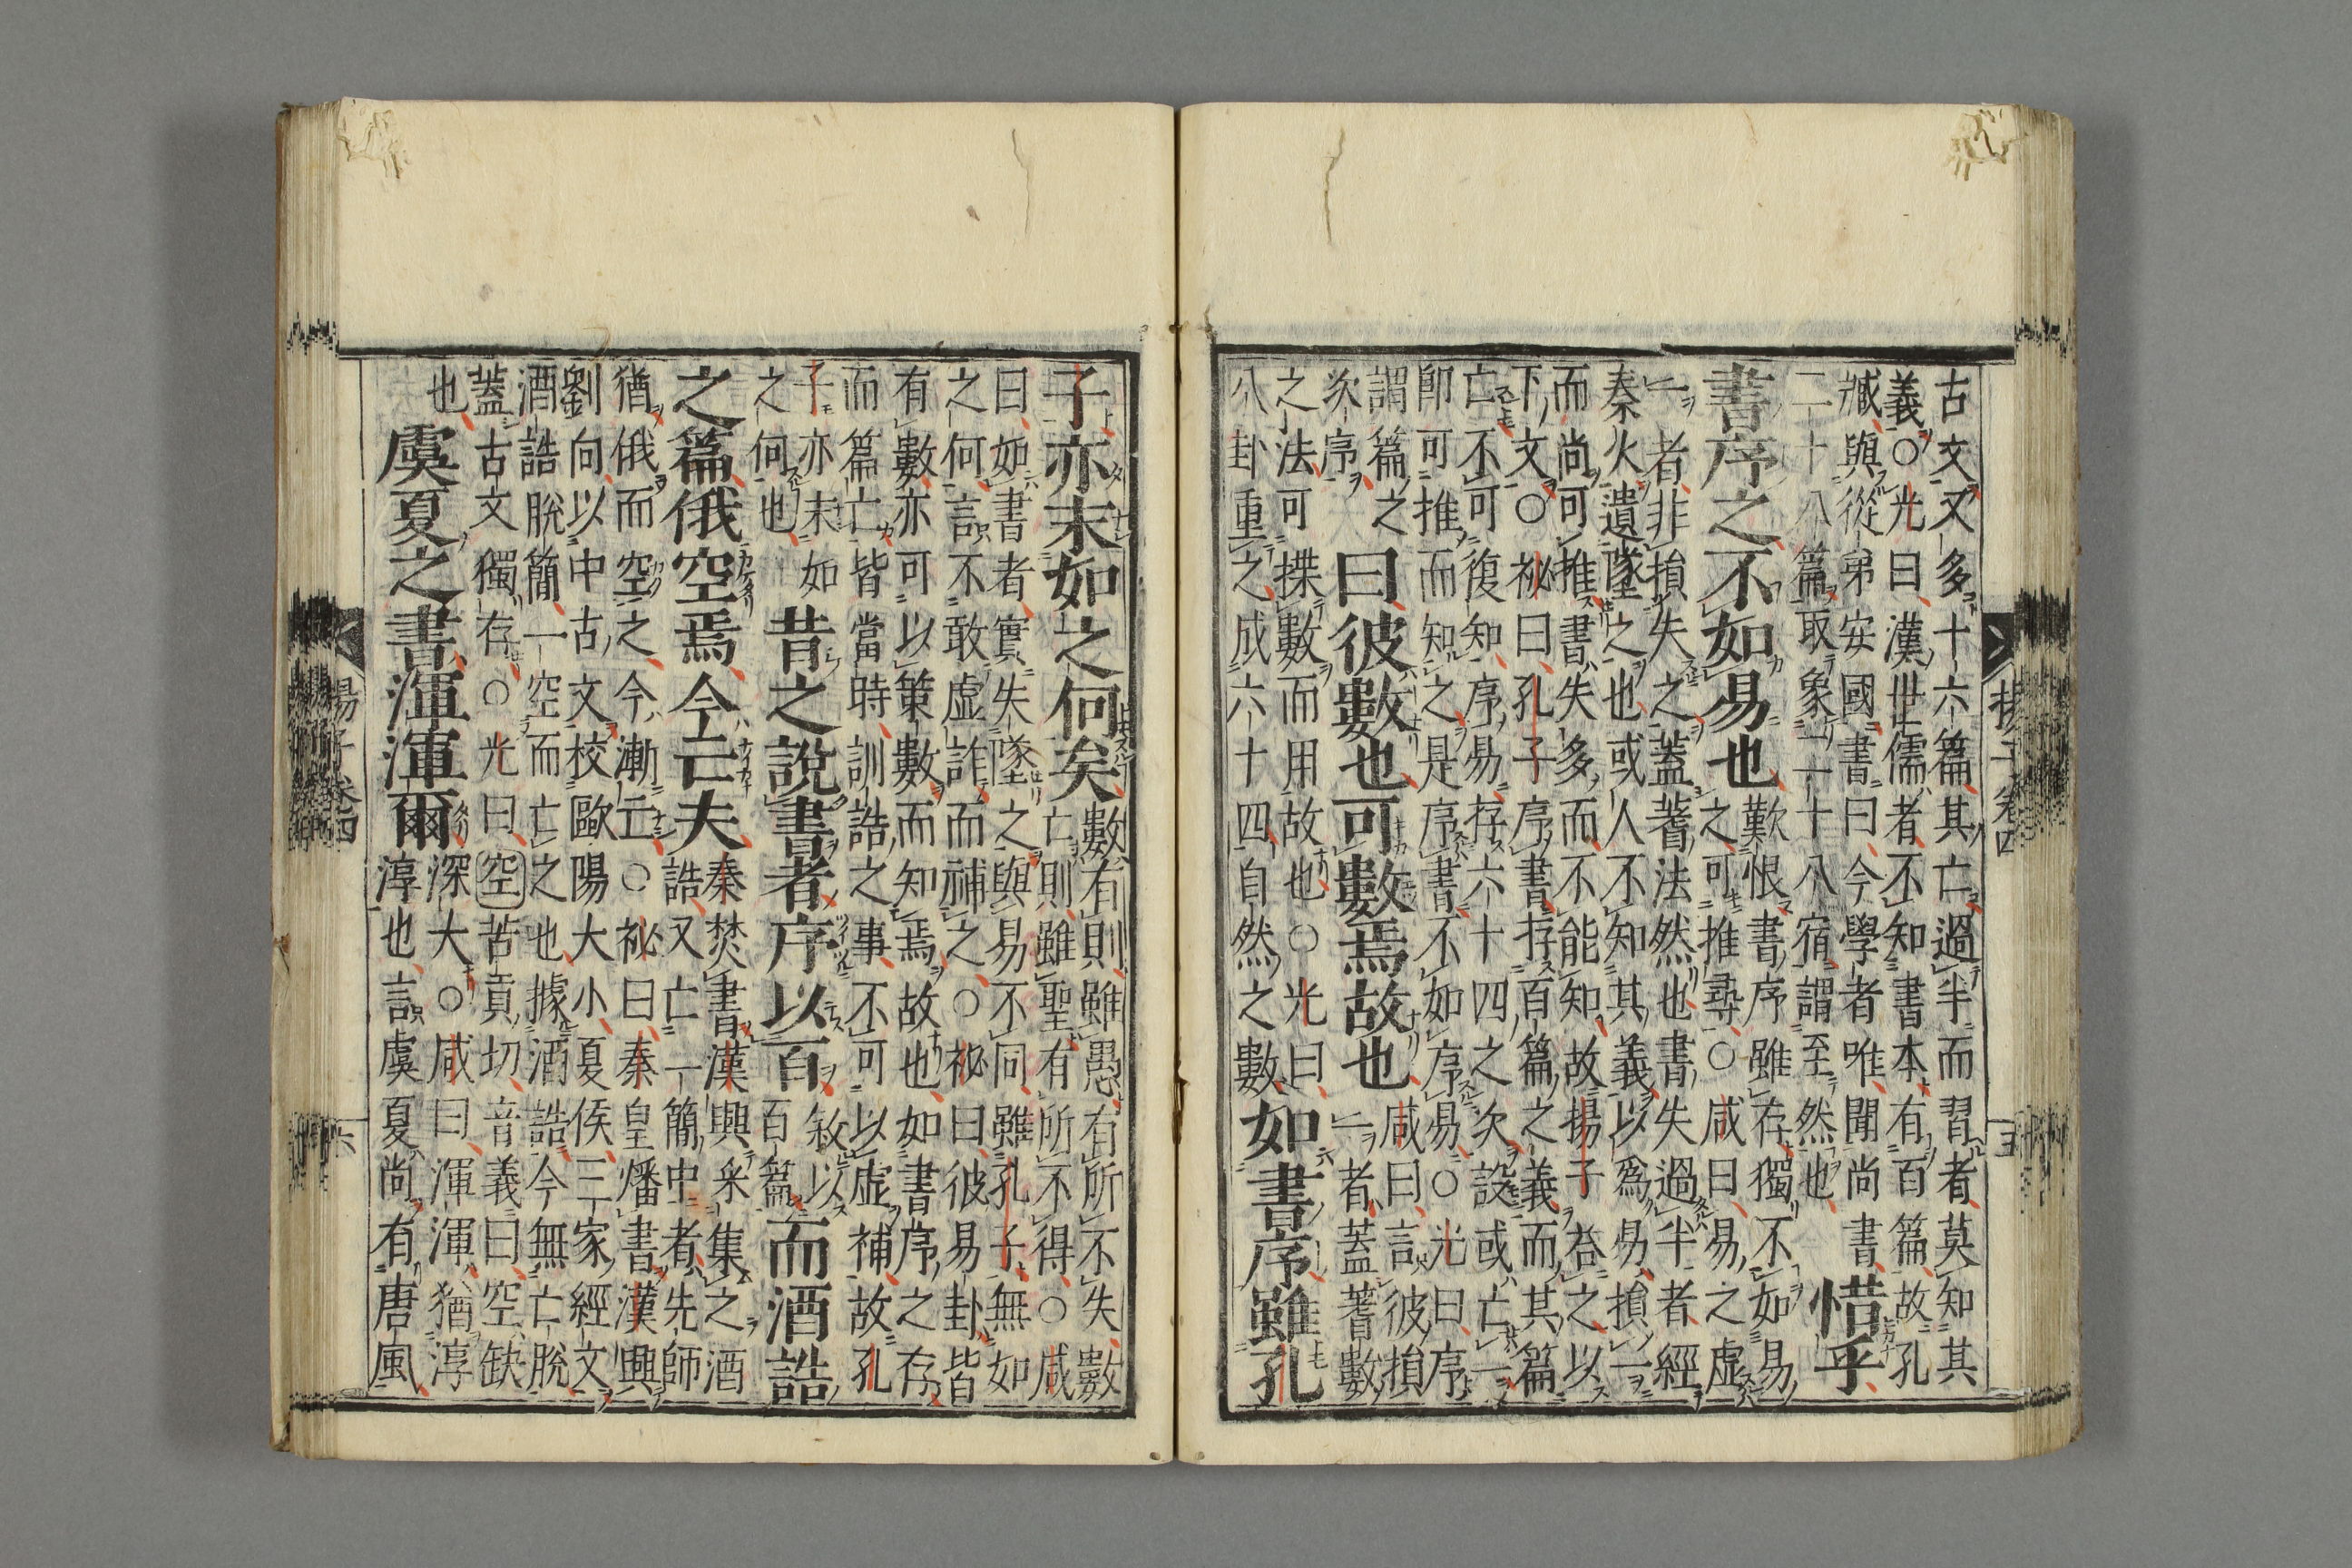 揚子卷四
五
古文又多十六篇其亡過半而習者莫知其
義○光曰漢世儒者不知書本有百篇故孔
臧與從弟安國書曰今學者唯聞尚書
二十八篇取象二十八宿謂至然也
惜乎
書序之不如易也
歎恨書序雖存獨不如易
之可推尋○咸曰易之虛
一者非損失之蓋蓍法然也書失過半者經
秦火遺墜之也或人不知其義以爲易損一
而尚可推書失多而不能知故揚子荅之以
下文○祕曰孔子序書存百篇之義而其篇
亡不可復知序易存六十四之次設或亡一
卽可推而知之是序書不如序易○光曰序
謂篇之
次序
曰彼數也可數焉故也
咸曰言彼損
一者蓋蓍數
之法可揲數而用故也○光曰
八卦重之成六十四自然之數
如書序雖孔
子亦末如之何矣
數有則雖愚有所不失數
亡則雖聖有所不得○咸
曰如書者實失墜之與易不同雖孔子無如
之何言不敢虛詐而補之○祕曰彼易卦皆
有數亦可以策數而知焉故也如書序之存
而篇亡皆當時訓誥之事不可以虛補故孔
子亦末如
之何也
昔之說書者序以百
敘以
百篇
而酒誥
之篇俄空焉今亡夫
秦焚書漢興采集之酒
誥又亡一簡中者先師
猶俄而空之今漸亡○祕曰秦皇燔書漢興
劉向以中古文校歐陽大小夏侯三家經文
酒誥脫簡一空而亡之也據酒誥今無亡脫
蓋古文獨存○光曰空苦貢切音義曰空缺
也
虞夏之書渾渾爾
深大○咸曰渾渾猶淳
淳也言虞夏尚有唐風
揚子卷四
六